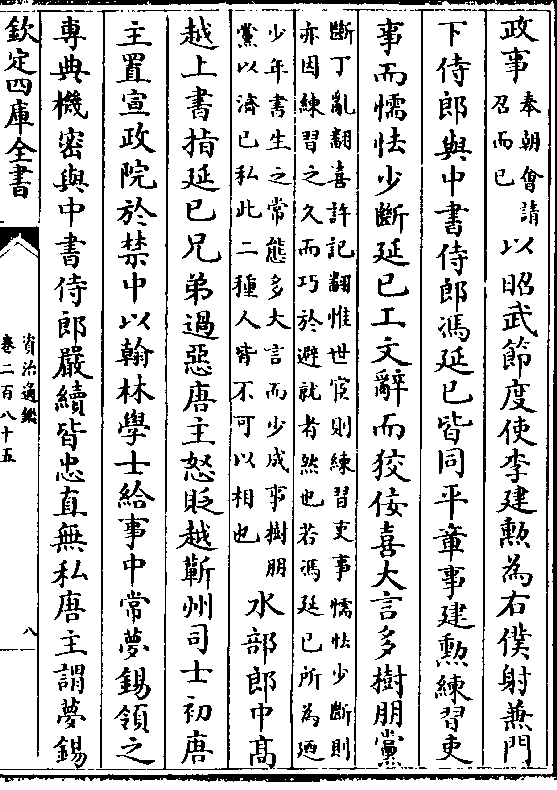 政事奉朝會請召而已以昭武節度使李建勲為右僕射兼門
下侍郎與中書侍郎馮延已皆同平章事建勲練習吏
事而懦怯少斷延已工文辭而狡佞喜大言多樹朋黨
斷丁亂翻喜許記翻惟世宦則練習吏事懦怯少斷則
亦因練習之久而巧於避就者然也若馮延已所為廼
少年書生之常態多大言而少成事樹朋
黨以濟已私此二種人皆不可以相也
水部郎中髙
越上書指延已兄弟過惡唐主怒貶越蘄州司士初唐
主置宣政院於禁中以翰林學士給事中常夢錫領之
専典機密與中書侍郎嚴續皆忠直無私唐主謂夢錫
欽定四庫全書
資治通鑑
卷二百八十五
八